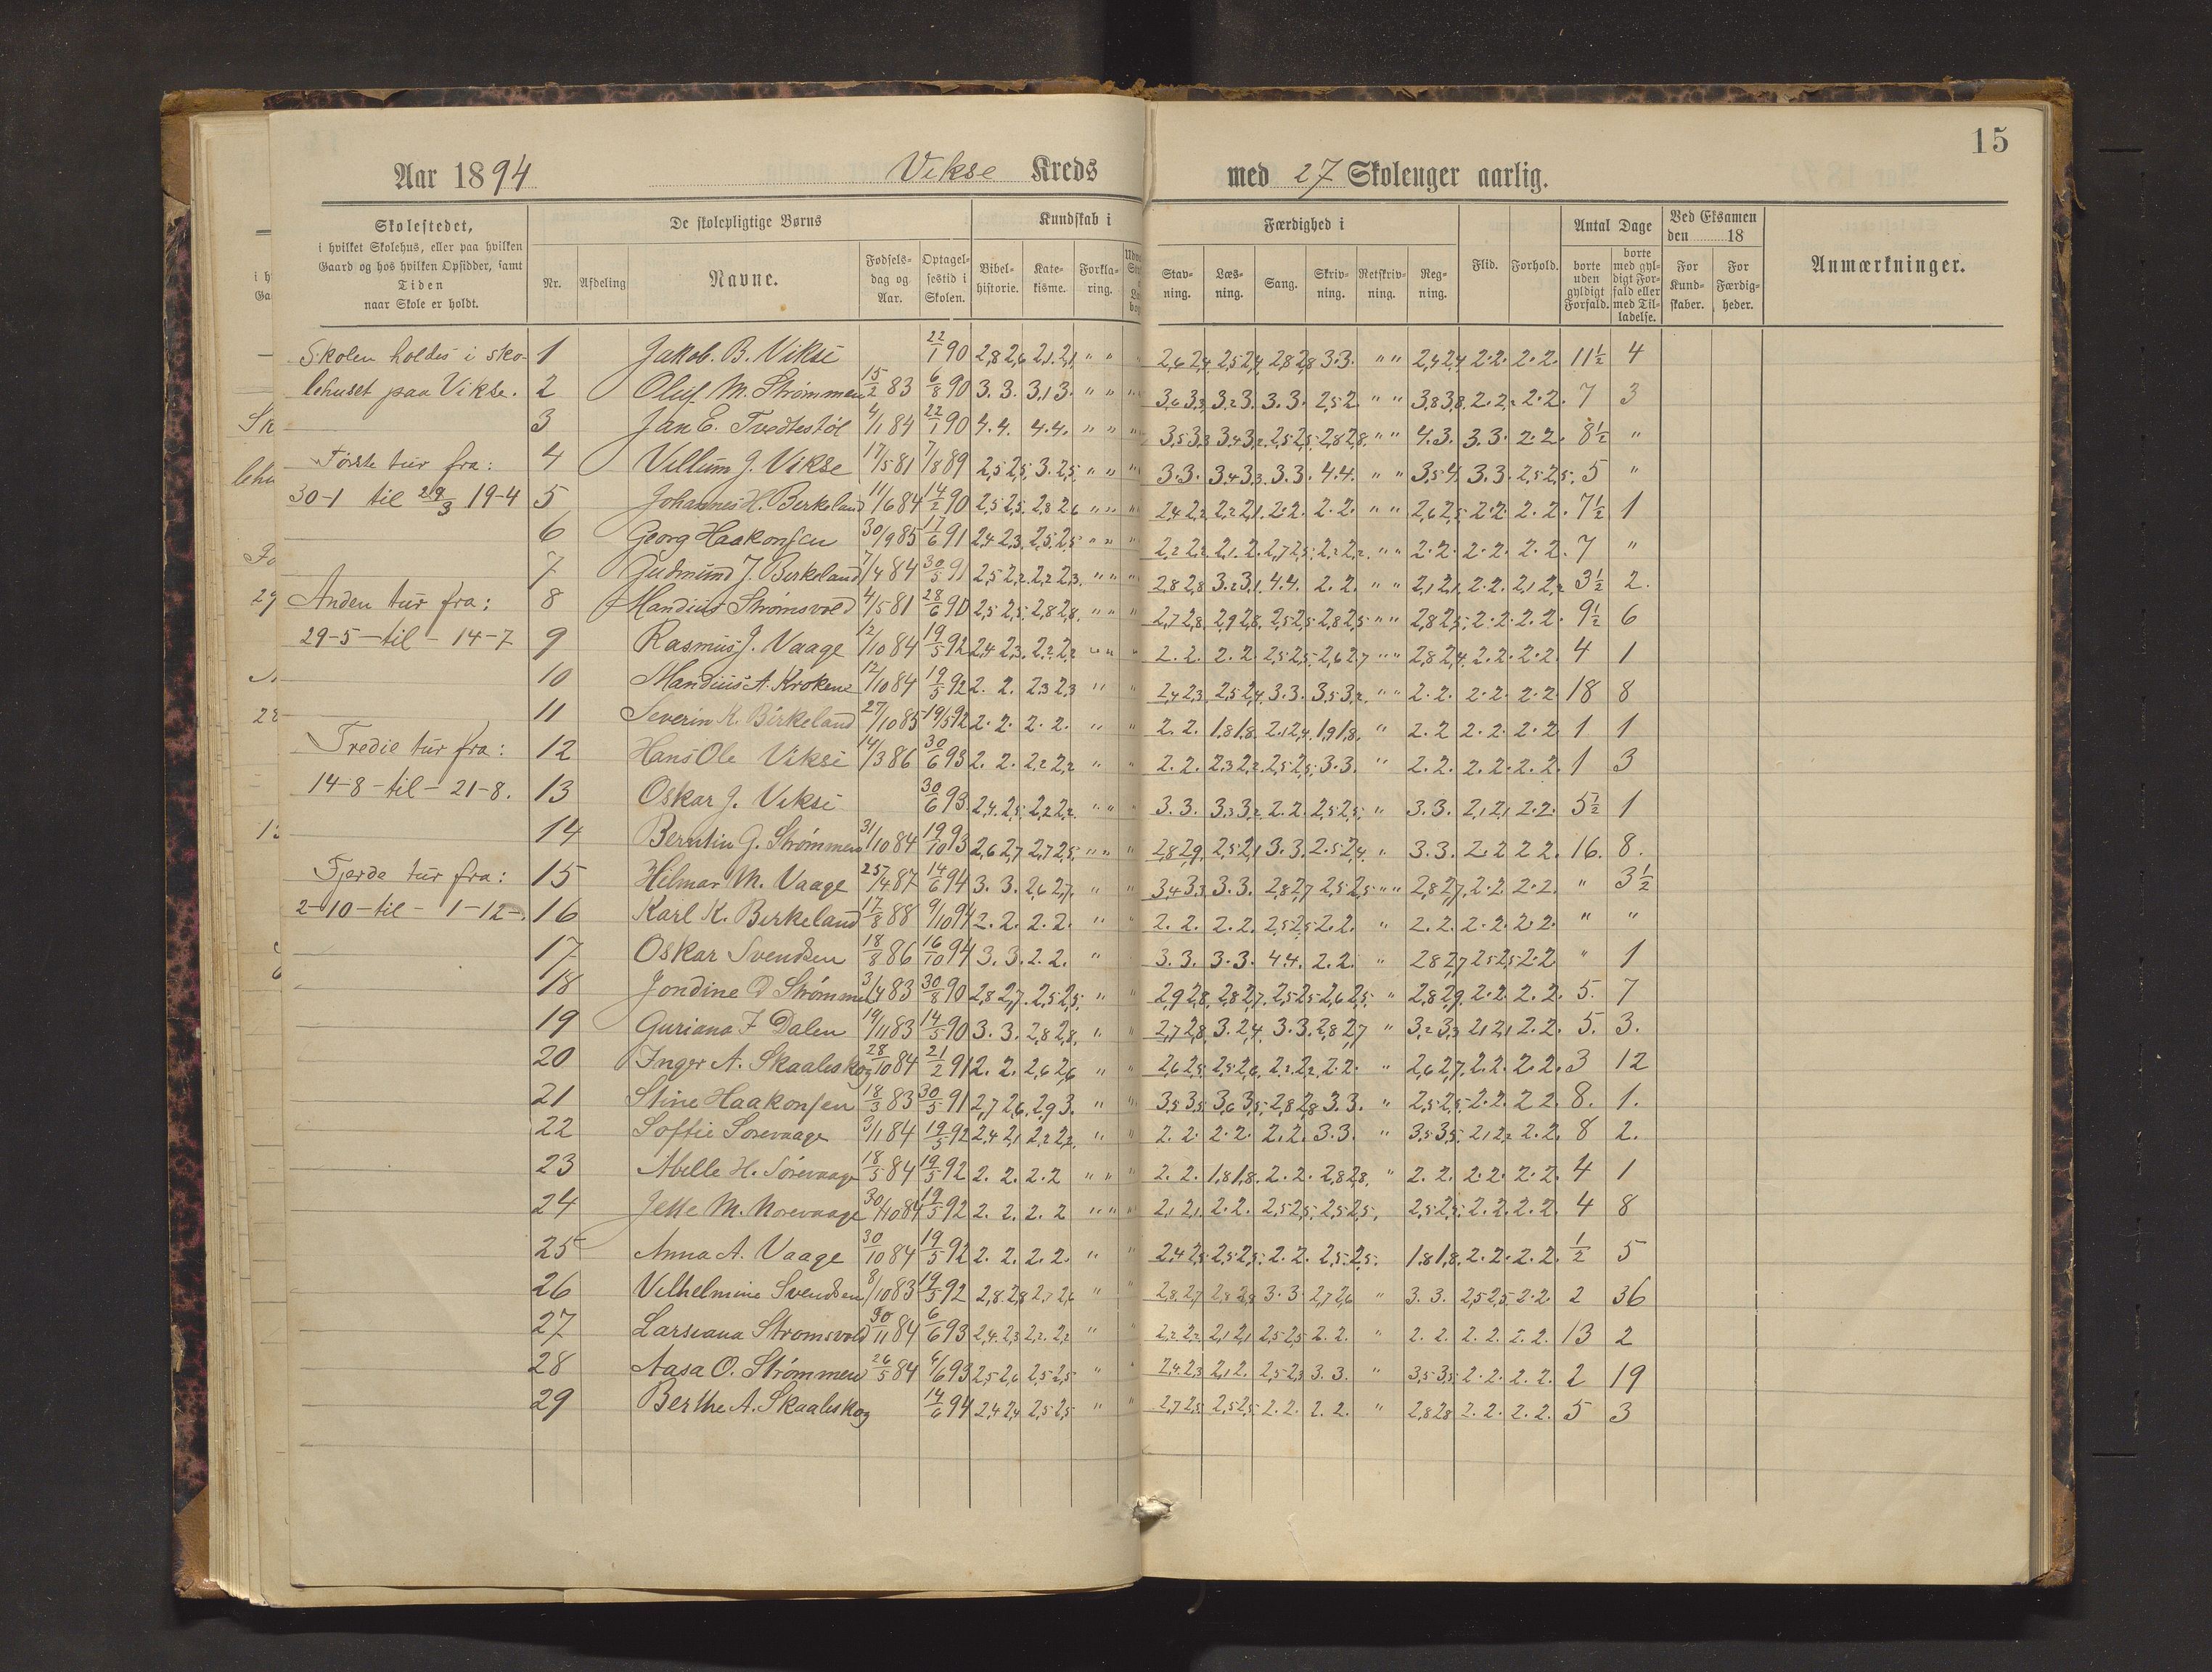 15
Aar 1894 Vikse Kreds med 27 Skoleuger aarlig.
Skolestedet, i hvilket Skolehus, eller paa hvilken Gaard og hos hvilken Opsidder, samt Tiden naar Skole er holdt.
De skolepligtige Børns
Nr. Afdeling Navne. Fødsels-dag og Aar. Optagel-sestid i Skolen.
Kundskab i
Bibel-historie. Kate-kisme. Forkla-ring.
Færdighed i
Stav-ning. Læs-ning. Sang. Skriv-ning. Retskriv-ning. Reg-ning.
Flid. Forhold.
Antal Dage
borte uden gyldigt Forfald. borte med gyl-digt For-fald eller med Til-ladelse.
Ved Eksamen den 18
For Kund-skaber. For Færdig-heder.
Anmærkninger.
Skolen holdes i sko-
lehuset paa Vikse.
Første tur fra:
30-1 til 29/3 19-4
Anden tur fra:
29-5-til-14-7
Tredie tur fra:
14-8-til-21-8.
Fjerde tur fra:
2-10-til-1-12-.
1 Jakob. B. Vikse 22/1 90 2,8 2,6 2,1 2,1 " " 2,6 2,4 2,5 2,4 2,8 2,8 3. 3. " " 2,4 2,4 2. 2. 2. 2. 11½ 4
2 Oluf M. Strømmen 15/2 83 6/8 90 3. 3. 3,1 3. " " 3,6 3,3 3,2 3. 3. 3. 2,5 2. " " 3,8 3,8 2. 2. 2. 2. 7 3
3 Jan E. Tvedtestøl 4/1 84 22/1 90 4. 4. 4. 4. " " 3,5 3,3 3,4 3,2 2,5 2,5 2,8 2,8 " " 4. 3. 3. 3. 2. 2. 8½ "
4 Villum J. Vikse 17/5 81 7/8 89 2,5 2,5 3. 2,5 " " 3. 3. 3,4 3,3 3. 3. 4. 4. " " 3,5 4. 3. 3. 2,5 2,5 5 "
5 Johannes H. Berkeland 11/6 84 14/2 90 2,5 2,5 2,8 2,6 " " 2,4 2,2 2,2 2,1 2. 2. 2. 2. " " 2,6 2,5 2. 2. 2. 2. 7½ 1
6 Georg Haakonsen 30/9 85 17/6 91 2,4 2,3 2,5 2,5 " " 2,2 2,2 2,1 2. 2,7 2,5 2,2 2,2 " " 2. 2. 2. 2. 2. 2. 7 "
7 Gudmund J. Berkeland 7/4 84 30/5 91 2,5 2,2 2,2 2,3 " " 2,8 2,8 3,2 3,1 4. 4. 2. 2. " " 2,1 2,1 2. 2. 2,1 2,2 3½ 2.
8 Mandius Strømsvold 4/5 81 28/6 90 2,5 2,5 2,8 2,8 " " 2,7 2,8 2,9 2,8 2,5 2,5 2,8 2,5 " " 2,8 2,5 2. 2. 2. 2. 9½ 6
9 Rasmus J. Vaage 12/10 84 19/5 92 2,4 2,3 2,2 2,2 " " 2. 2. 2. 2. 2,5 2,5 2,6 2,7 " " 2,8 2,4 2. 2. 2. 2. 4 1
10 Mandius A. Kroken 12/10 84 19/5 92 2. 2. 2,3 2,3 " 2,4 2,3 2,5 2,4 3. 3. 3,5 3,2 " " 2. 2. 2. 2. 2. 2. 18 8
11 Severin K. Birkeland 27/10 85 19/5 92 2. 2. 2. 2. " 2. 2. 1,8 1,8 2,1 2,4 1,9 1,8 " 2. 2 2. 2. 2. 2 1 1
12 Hans Ole Vikse 14/3 86 30/6 93 2. 2. 2,2 2,2 " 2. 2. 2,3 2,2 2,5 2,5 3. 3. " 2. 2. 2. 2. 2. 2. 1 3
13 Oskar J. Vikse 30/6 93 2,4 2,5 2,2 2,2 " " 3. 3. 3,3 3,2 2. 2. 2,5 2,5 " 3. 3. 2,1 2,1 2. 2. 5½ 1
14 Berntin G. Strømmen 31/10 84 19/10 93 2,6 2,7 2,7 2,5 " " 2,8 2,9 2,5 2,1 3. 3. 2,5 2,4 " 3. 3. 2. 2 2 2. 16. 8.
15 Hilmar M. Vaage 25/4 87 14/6 94 3. 3. 2,6 2,7 " 3,4 3,3 3. 3. 2,8 2,7 2,5 2,5 " " 2,8 2,7 2. 2. 2. 2. " 3½
16 Karl K. Berkeland 17/8 88 9/10 94 2. 2. 2. 2. " 2. 2. 2. 2. 2,5 2,5 2. 2. " 2. 2. 2. 2. 2. 2. " "
17 Oskar Svendsen 18/8 86 16/10 94 3. 3. 2. 2. " 3. 3. 3. 3. 4. 4. 2. 2. " 2,8 2,7 2,5 2,5 2. 2. " 1
18 Jondine O Strømmen 3/4 83 30/8 90 2,8 2,7 2,5 2,5 " 2,9 2,8 2,8 2,7 2,5 2,5 2,6 2,5 " 2,8 2,9 2. 2. 2. 2. 5. 7
19 Guriana F Dalen 19/11 83 14/5 90 3. 3. 2,8 2,8 " 2,7 2,8 3. 2,4 3. 3. 2,8 2,7 " 3,2 3,3 2,1 2,1 2. 2. 5. 3.
20 Inger A. Skaaleskog 28/10 84 21/2 91 2. 2. 2,6 2,6 " 2,6 2,5 2,5 2,6 2,2 2,2 2. 2. " 2,6 2,7 2. 2. 2. 2. 3 12
21 Stine Haakonsen 18/3 83 30/5 91 2,7 2,6 2,9 3. " 3,5 3,5 3,6 3,5 2,8 2,8 3. 3. " 2,5 2,5 2. 2. 2 2. 8. 1.
22 Soffie Sorevaage 3/1 84 19/5 92 2,4 2,1 2,2 2,2 " 2. 2. 2. 2. 2. 2. 3. 3. " 3,5 3,5 2,1 2,2 2. 2. 8 2.
23 Abelle H. Sørevaage 18/5 84 19/5 92 2. 2. 2. 2 " " 2. 2. 1,8 1,8 2. 2. 2,8 2,8 " 2. 2. 2. 2. 2. 2. 4 1
24 Jette M. Norevaage 30/10 84 19/5 92 2. 2. 2. 2 " " 2,1 2,1 2. 2. 2,5 2,5 2,5 2,5 2,5 2,5 2. 2. 2. 2. 4 8
25 Anna A. Vaage 30/10 84 19/5 92 2. 2. 2. 2. " 2,4 2,5 2,5 2,5 2. 2. 2,5 2,5 1,8 1,8 2. 2. 2. 2. ½ 5
26 Vilhelmine Svendsen 8/10 83 19/5 92 2,8 2,8 2,7 2,6 " 2,8 2,7 2,8 2,8 3. 3 2,7 2,6 " 3. 3. 2,5 2,5 2. 2. 2 36
27 Larsiana Strømsvold 30/11 84 6/6 93 2,4 2,3 2,2 2,2 " 2,2 2,2 2,1 2,1 2,5 2,5 2. 2. " 2. 2. 2. 2. 2. 2. 13 2
28 Aasa O. Strømmen 26/5 84 6/6 93 2,5 2,6 2,5 2,5 " 2,4 2,3 2,1 2. 2,5 2,3 3. 3. " 3,5 3,5 2. 2. 2. 2. 2 19
29 Berthe A. Skaaleskog 14/6 94 2,4 2,4 2,5 2,5 " 2,7 2,5 2,5 2,5 2. 2. 2. 2. " 2,8 2,8 2. 2. 2. 2. 5 3